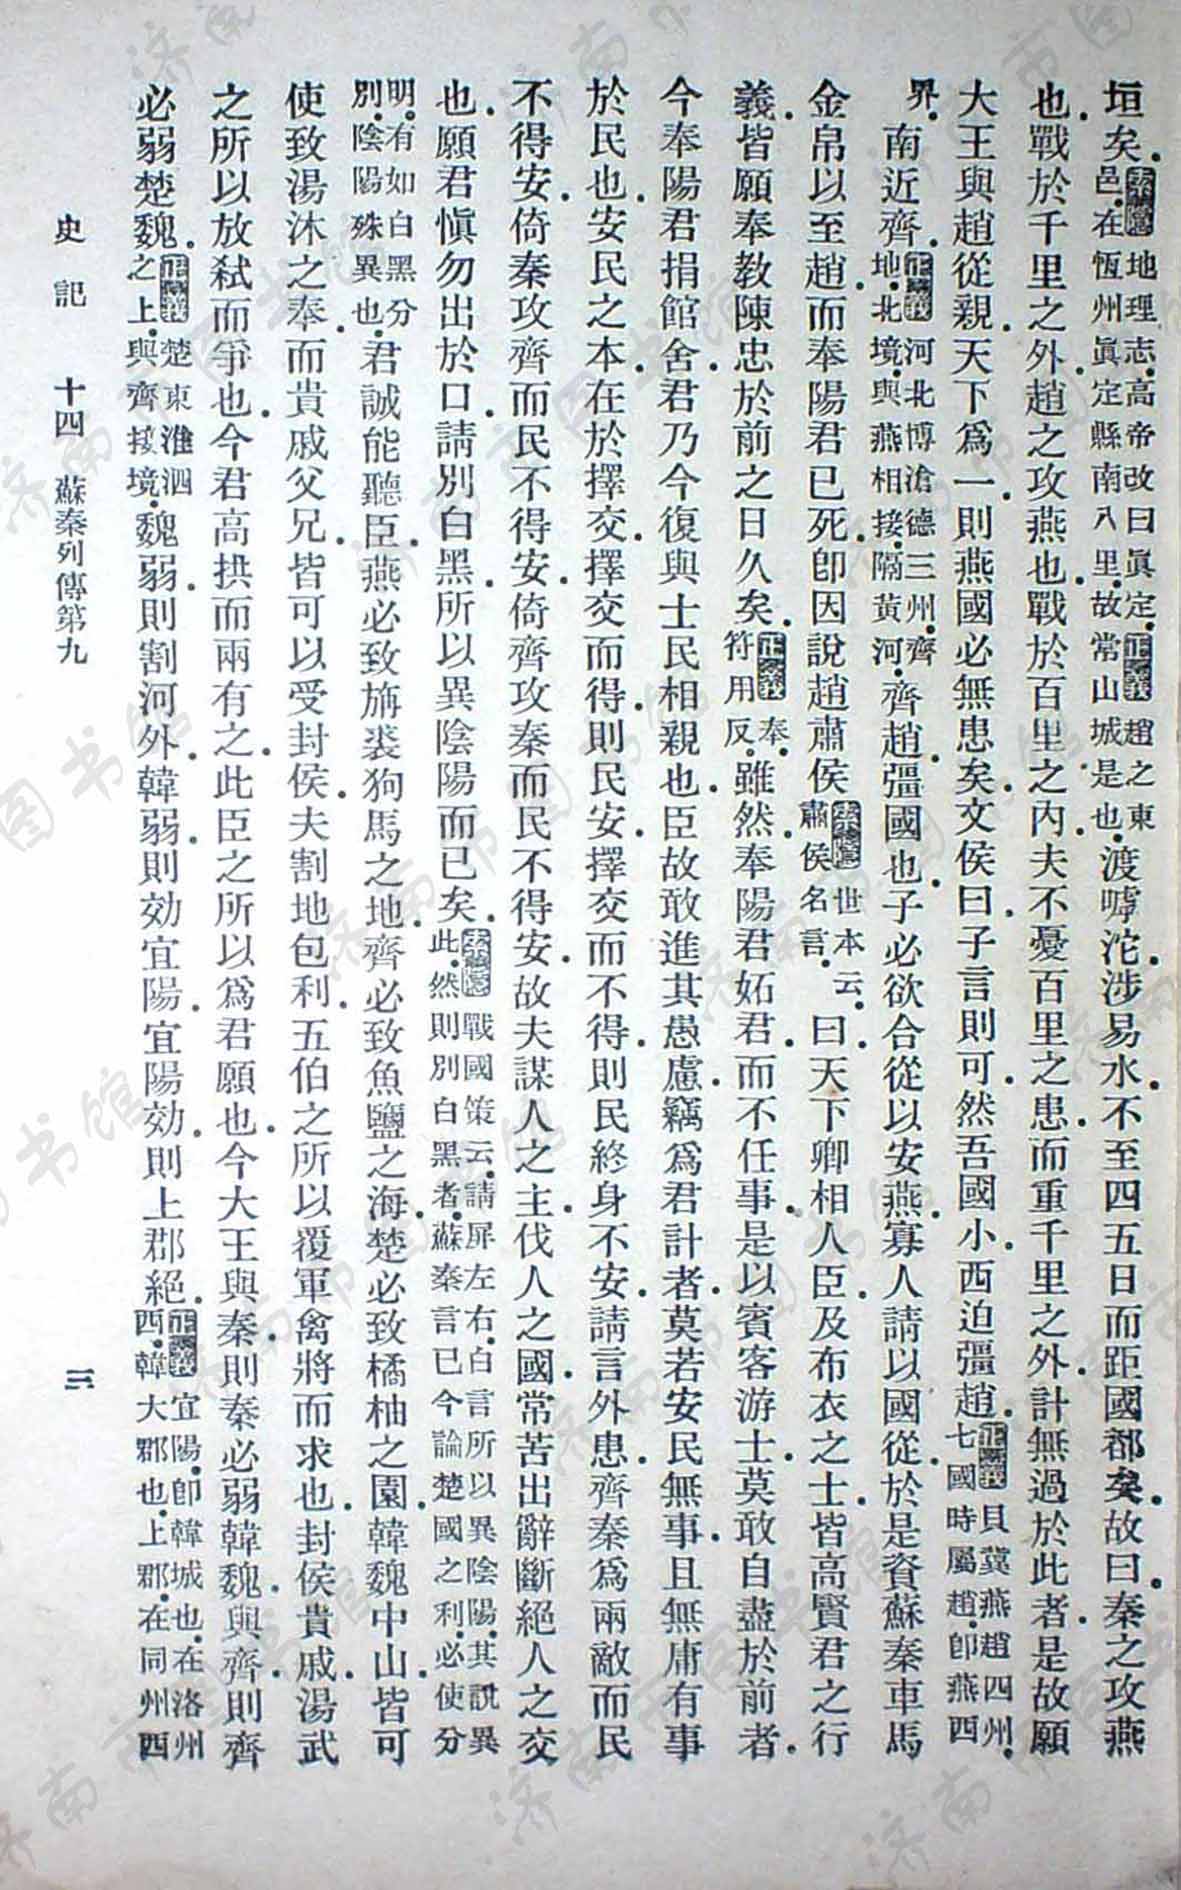 垣矣。索隱地理志。高帝改曰眞定。正義趙之東邑。在恆州眞定縣南八里。故常山城是也。渡嘑沱。涉易水。不至四五日而距國都矣。故曰。秦之攻燕
也。戰於千里之外。趙之攻燕也。戰於百里之內。夫不憂百里之患。而重千里之外。計無過於此者。是故願
大王與趙從親。天下爲一。則燕國必無患矣。文侯曰。子言則可。然吾國小。西迫彊趙。正義貝冀燕趙四州。七國時屬趙。卽燕西
界。南近齊。正義河北博滄德三州。齊地。北境。與燕相接。隔黃河。齊趙彊國也。子必欲合從以安燕。寡人請以國從。於是資蘇秦車馬
金帛以至趙。而奉陽君已死。卽因說趙肅侯索隱世本云。肅侯名言。曰。天下卿相人臣。及布衣之士。皆高賢君之行
義。皆願奉教陳忠於前之日久矣。正義奉。符用反。雖然。奉陽君妬君。而不任事。是以賓客游士。莫敢自盡於前者。
今奉陽君捐館舍。君乃今復與士民相親也。臣故敢進其愚慮。竊爲君計者。莫若安民無事。且無庸有事
於民也。安民之本。在於擇交。擇交而得。則民安。擇交而不得。則民終身不安。請言外患。齊秦爲兩敵。而民
不得安。倚秦攻齊。而民不得安。倚齊攻秦。而民不得安。故夫謀人之主。伐人之國。常苦出辭斷絕人之交
也。願君愼勿出於口。請別白黑。所以異陰陽而已矣。索隱戰國策云。請屏左右。白言所以異陰陽。其說異此。然則別白黑者。蘇秦言已今論楚國之利。必使分
明。有如白黑分別。陰陽殊異也。君誠能聽臣。燕必致旃裘狗馬之地。齊必致魚鹽之海。楚必致橘柚之園。韓魏中山。皆可
使致湯沐之奉。而貴戚父兄。皆可以受封侯。夫割地包利。五伯之所以覆軍禽將而求也。封侯貴戚。湯武
之所以放弒而爭也。今君高拱而兩有之。此臣之所以爲君願也。今大王與秦。則秦必弱韓魏。與齊。則齊
必弱楚魏。正義楚東淮泗之上。與齊接境。魏弱。則割河外。韓弱。則効宜陽。宜陽効。則上郡絕。正義宜陽。卽韓城也。在洛州西。韓大郡也。上郡。在同州西
史記 十四 蘇秦列傳第九 三